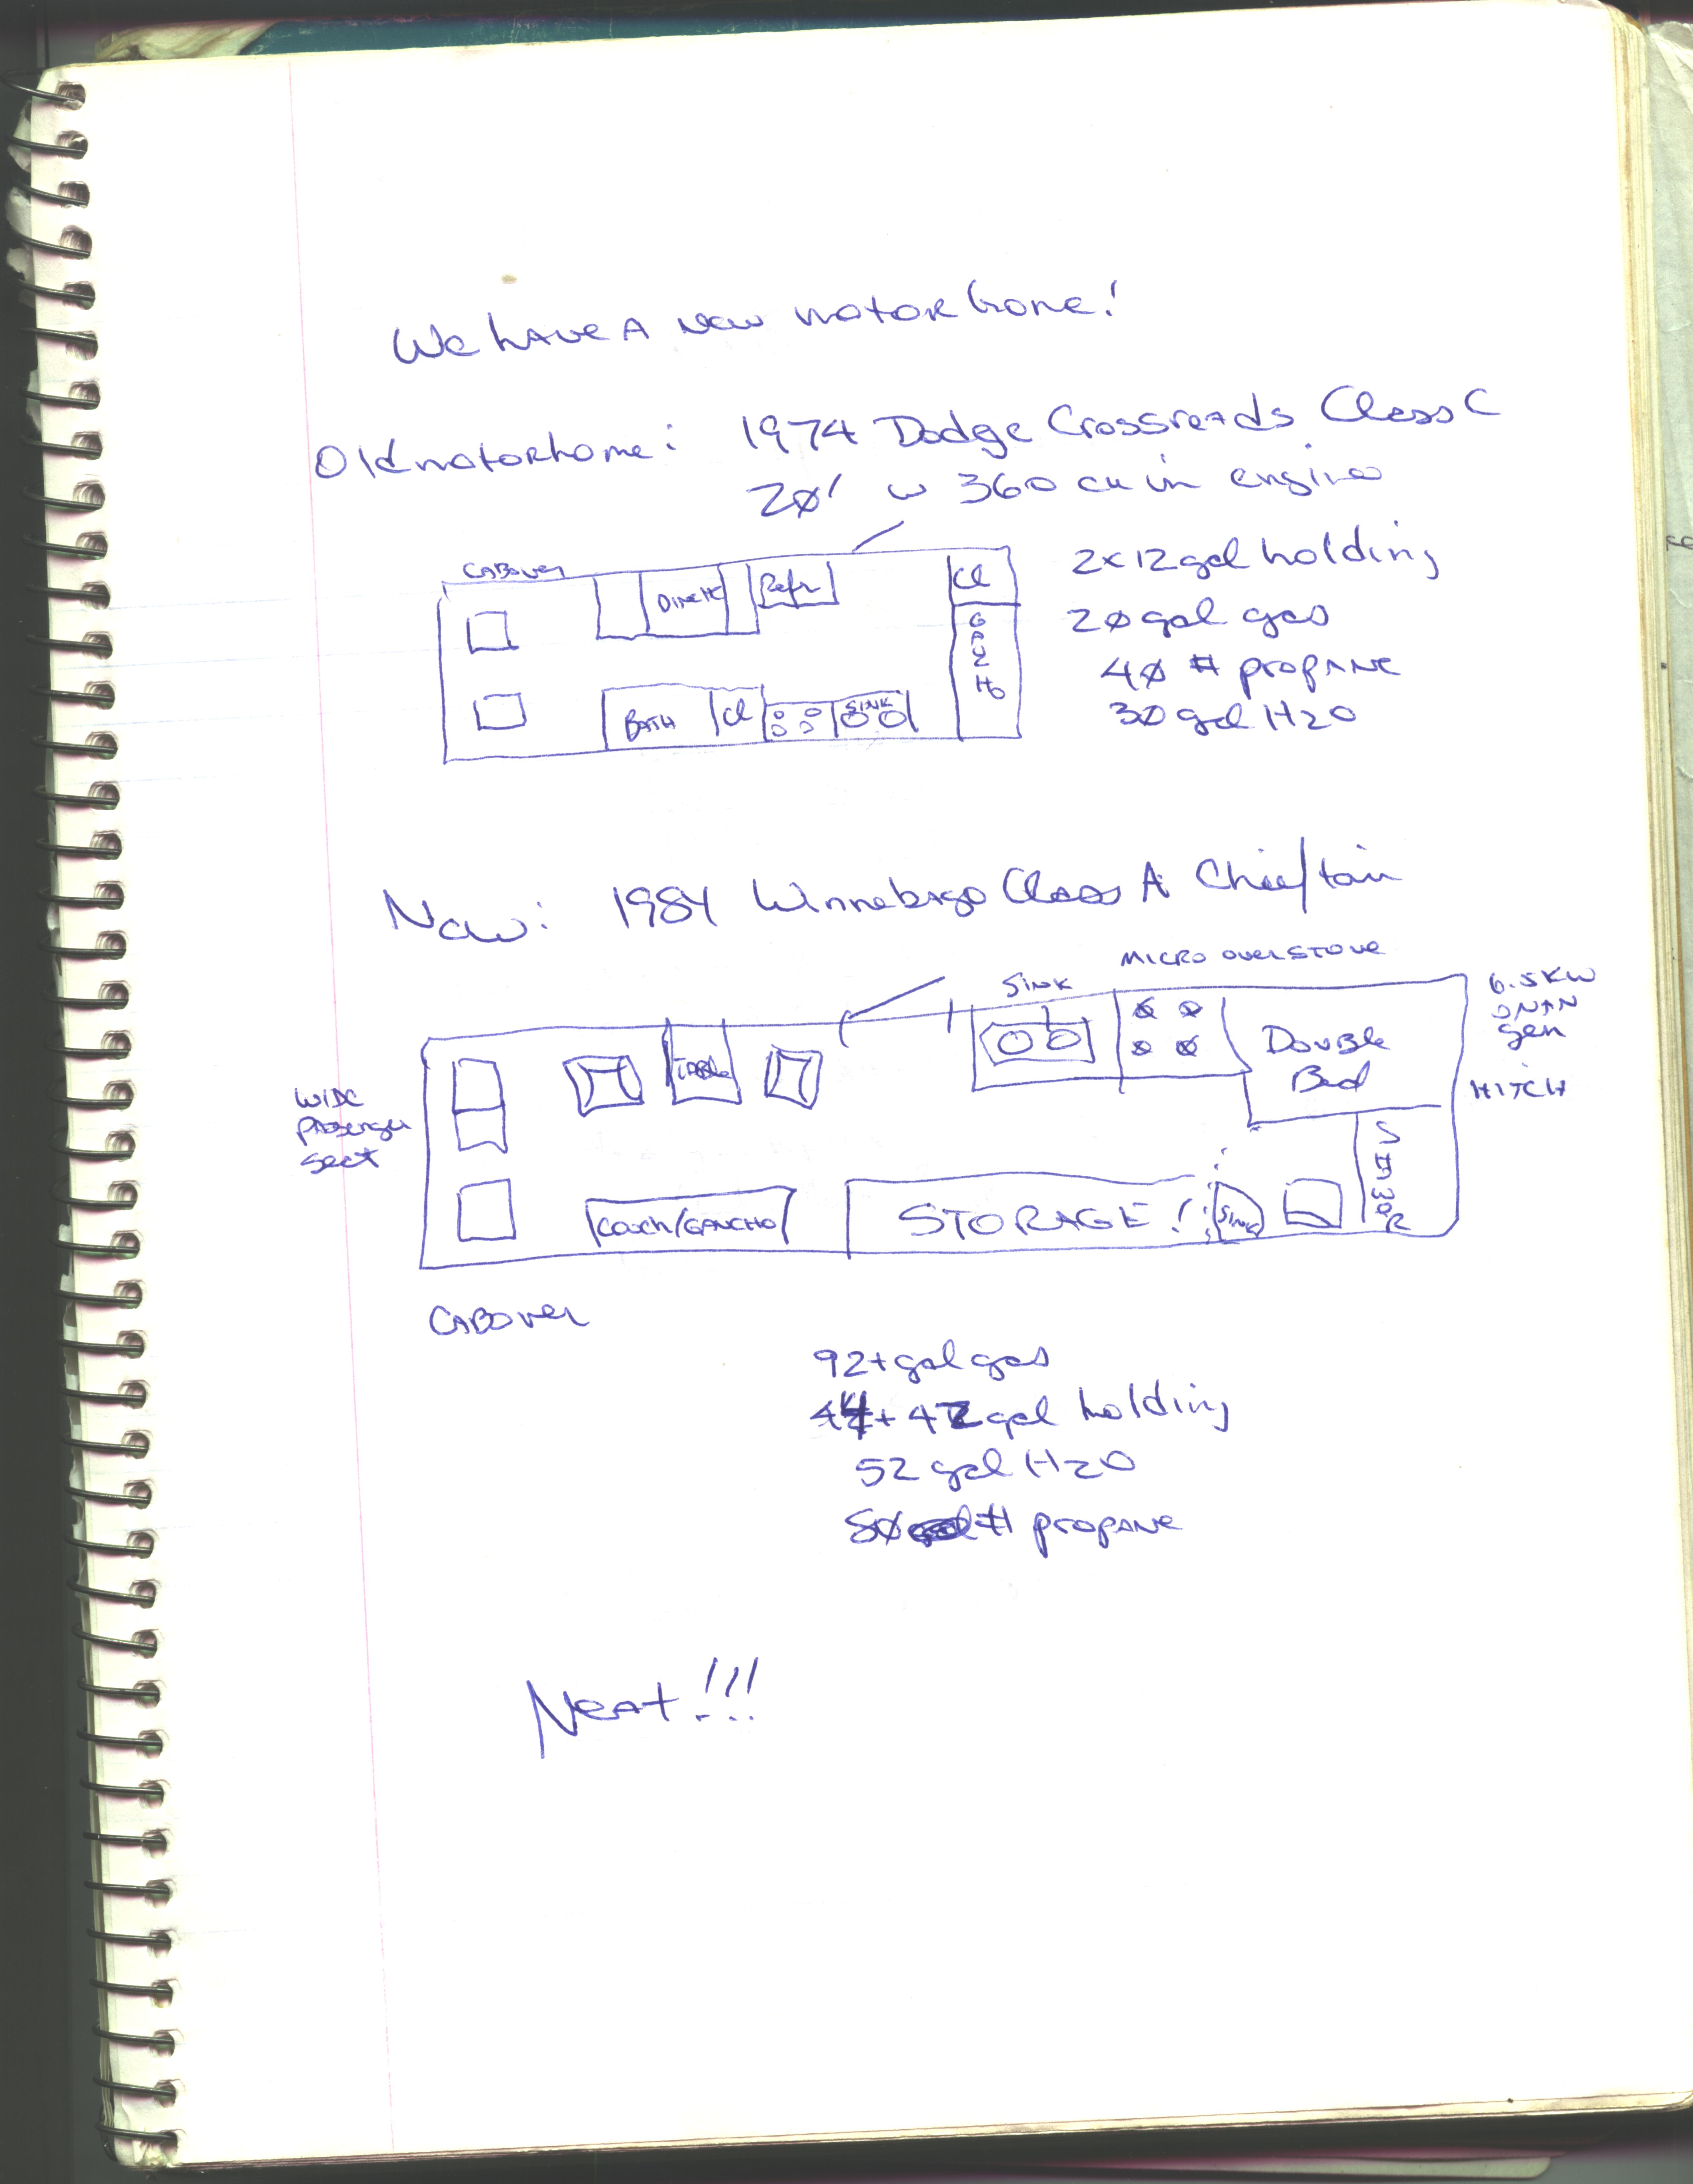 We have a new motor home!
Old motorhome: 1974 Dodge Crossroads Class C
20' w 360 cu in engine
CABOVER
DINETTE
Refr
Cl
GAUCHO
BATH
Cl
SINK
2x12 gal holding
20 gal gas
40 # propane
30 gal H2O
New: 1984 Winnebago Class A Chieftain
MICRO OVER STOVE
SINK
6.5KW
ONAN
gen
HITCH
Table
Double
Bed
WIDE
passenger
seat
COUCH/GAUCHO
STORAGE!
SINK
SHOWR
CABOVER
92+ gal gas
44 + 42 gal holding
52 gal H2O
80 # propane
Neat!!!